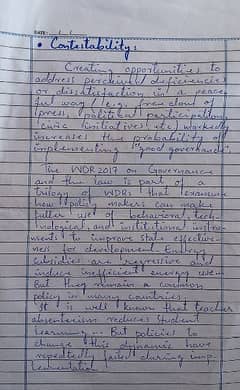 DATE: / /
• Contestability:
Creating opportunities to
address perceived deficiencies
or dissatisfaction in a peace
ful way (e.g. freedom of
press, political participation,
civic initiatives, etc.) markedly
increases the probability of
implementing "good governance".
The WDR 2017 on Governance
and the law is part of a
trilogy of WDRs that examine
how policy makers can make
fuller use of behavioral, tech-
nological, and institutional instru-
ments to improve state effective-
ness for development. Energy
subsidies are regressive and
induce inefficient energy use.
But they remain a common
policy in many countries.
It is well known that teacher
absenteeism reduces student
learning... But policies to
change this dynamic have
repeatedly failed during imp-
lementation